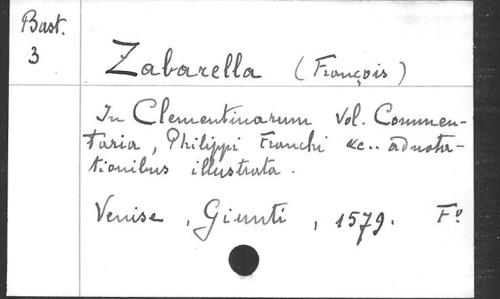 Bast.
3
Zabarella (François)
In Clementinarum Vol. Commen-
taria, Philippi Franchi &c.. adnota-
tionibus illustrata.
Venise, Giunti, 1579. Fº